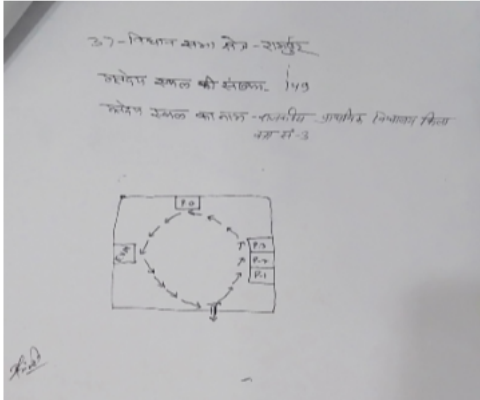 37-विधान सभा क्षेत्र - रामपुर
मतदेय स्थल की संख्या - 149
मतदेय स्थल का नाम - राजकीय प्राथमिक विद्यालय किला
कक्ष सं-3
P.O
P.3
P.2
P.1